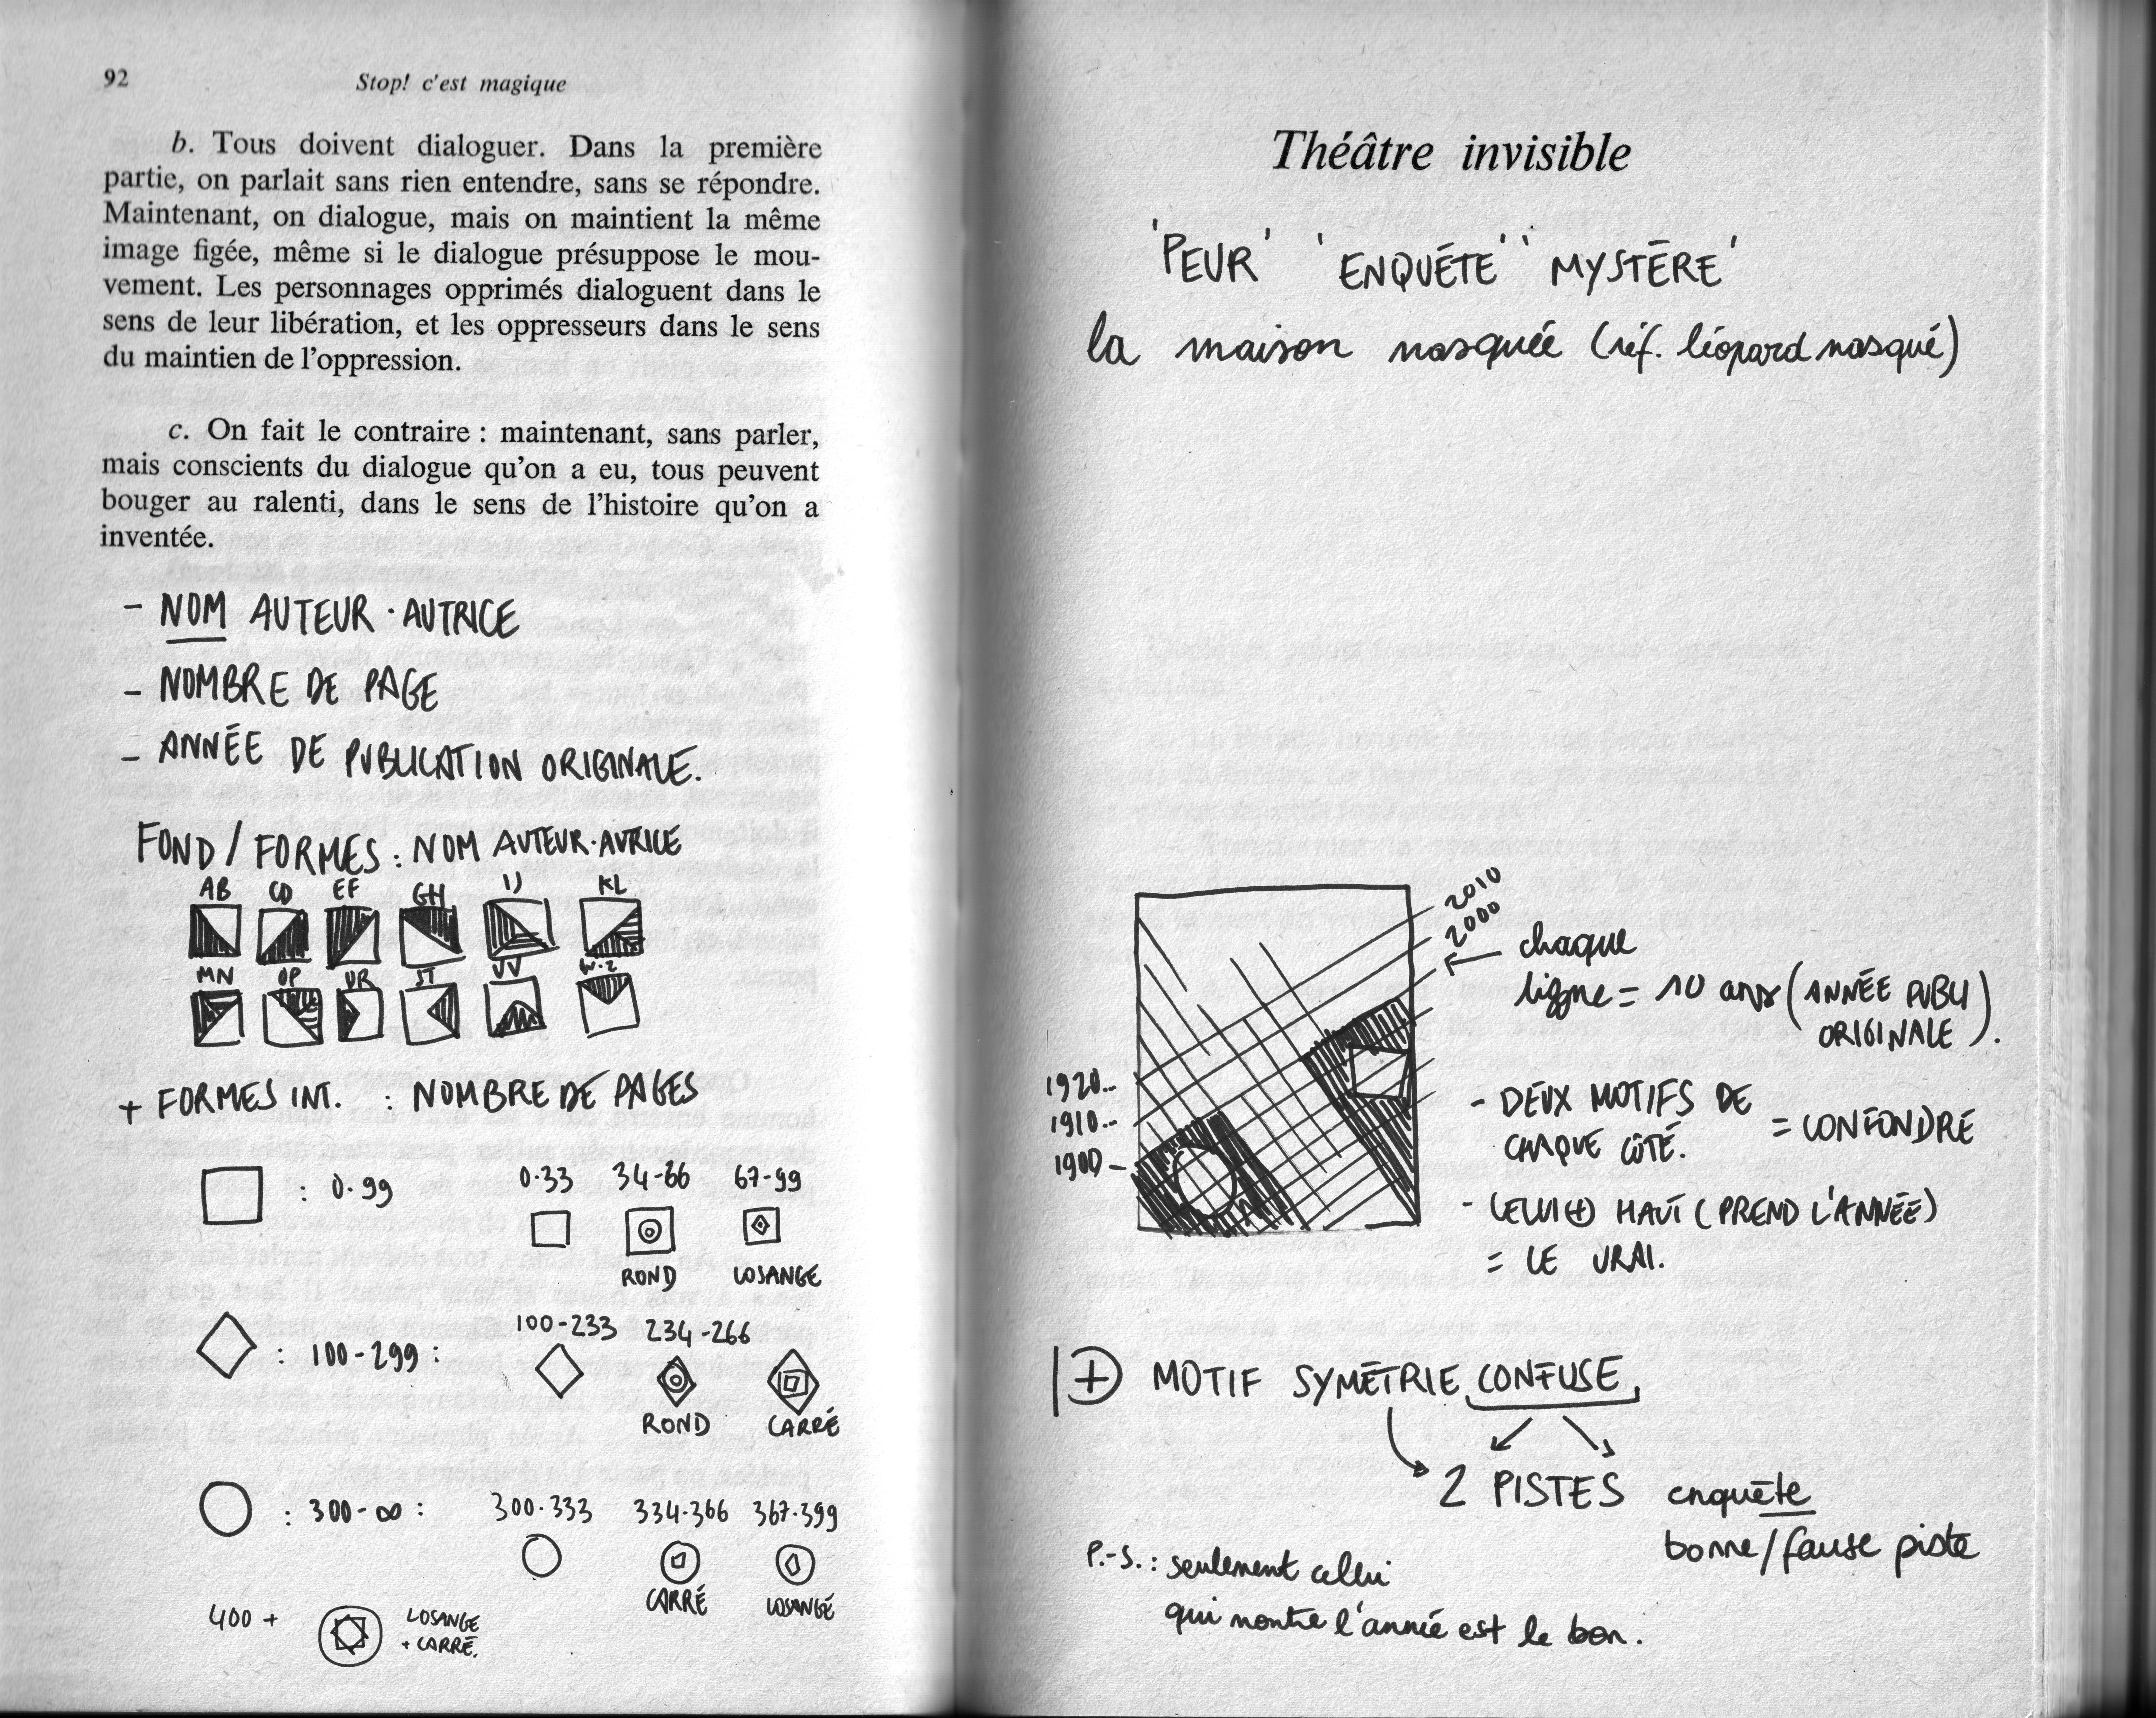 92
Stop! c'est magique
b. Tous doivent dialoguer. Dans la première
partie, on parlait sans rien entendre, sans se répondre.
Maintenant, on dialogue, mais on maintient la même
image figée, même si le dialogue présuppose le mou-
vement. Les personnages opprimés dialoguent dans le
sens de leur libération, et les oppresseurs dans le sens
du maintien de l'oppression.
c. On fait le contraire : maintenant, sans parler,
mais conscients du dialogue qu'on a eu, tous peuvent
bouger au ralenti, dans le sens de l'histoire qu'on a
inventée.
- NOM AUTEUR · AUTRICE
- NOMBRE DE PAGE
- ANNÉE DE PUBLICATION ORIGINALE.
FOND / FORMES : NOM AUTEUR·AUTRICE
AB CD EF GH IJ KL
MN OP QR ST UV W-Z
+ FORMES INT. : NOMBRE DE PAGES
: 0·99 0·33 34-66 67-99
ROND LOSANGE
: 100-299 : 100-233 234-266
ROND CARRÉ
: 300-∞ : 300·333 334·366 367·399
CARRÉ LOSANGE
400 + LOSANGE
+ CARRÉ.
Théâtre invisible
'PEUR' 'ENQUÊTE' 'MYSTÈRE'
la maison masquée (réf. léopard masqué)
2010
2000
chaque
ligne = 10 ans (ANNÉE PUBLI
ORIGINALE).
1920--
1910--
1900-
- DEUX MOTIFS DE
CHAQUE CÔTÉ. = CONFONDRE
- CELUI (+) HAUT (PREND L'ANNÉE)
= LE VRAI.
+ MOTIF SYMÉTRIE CONFUSE
2 PISTES enquête
bonne/fausse piste
P.-S. : seulement celui
qui montre l'année est le bon.